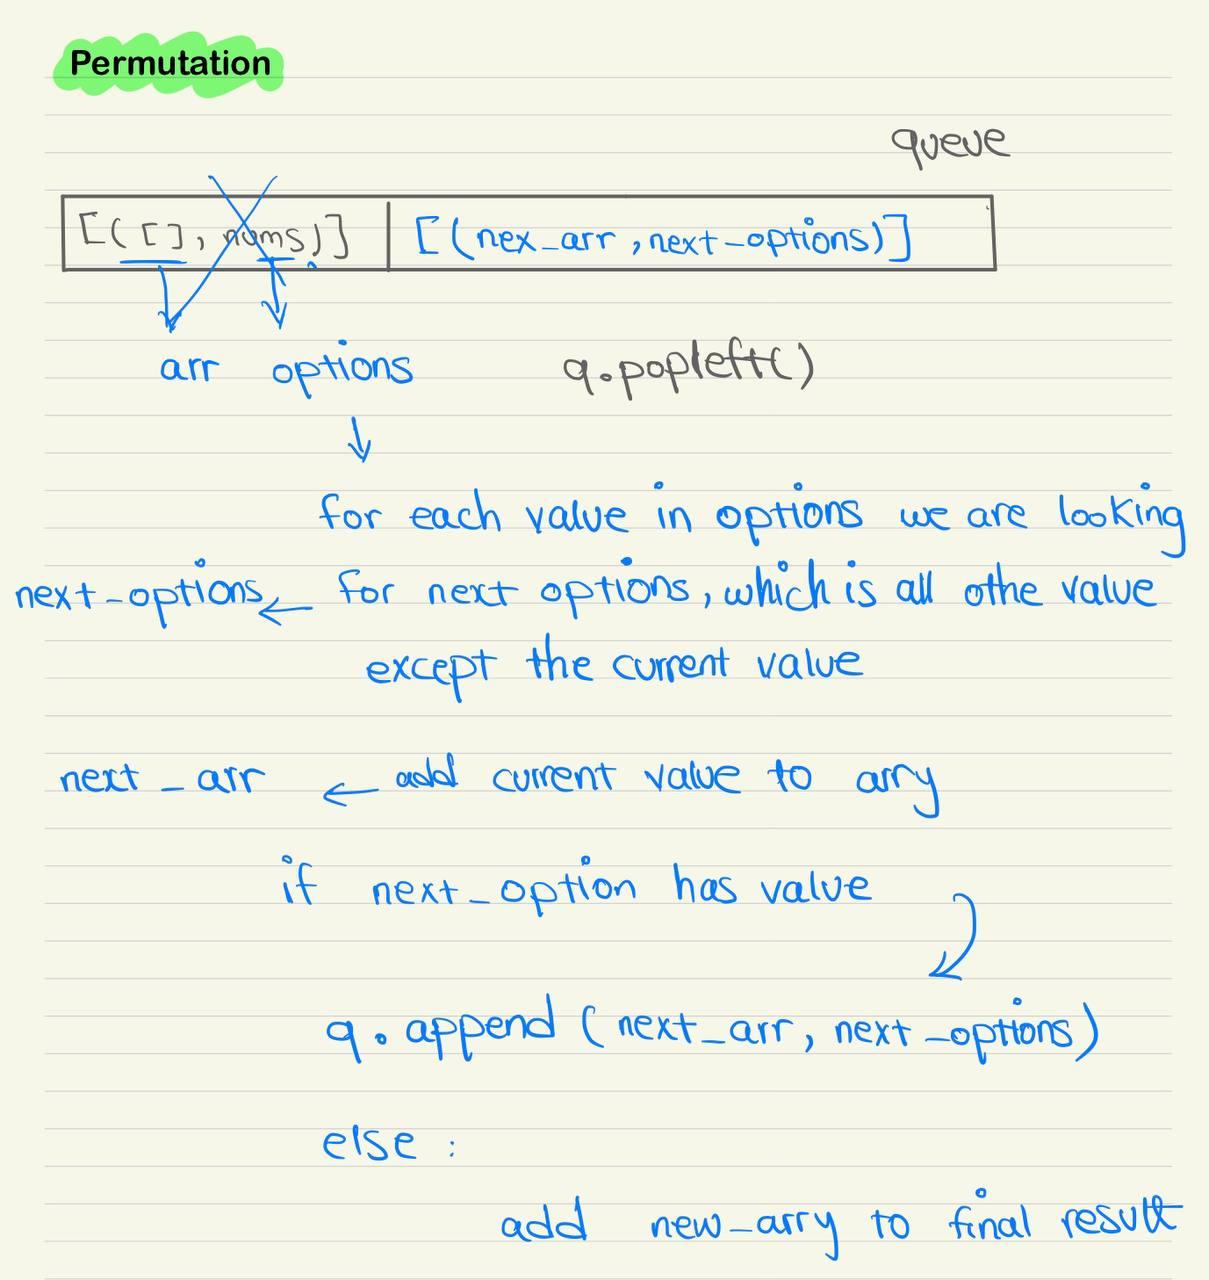 Permutation
queue
[([], nums)] [(nex_arr, next-options)]
arr options q.popleft()
for each value in options we are looking
next-options ← for next options, which is all othe value
except the current value
next_arr ← add current value to arry
if next_option has value
q.append (next_arr, next-options)
else :
add new-arry to final result